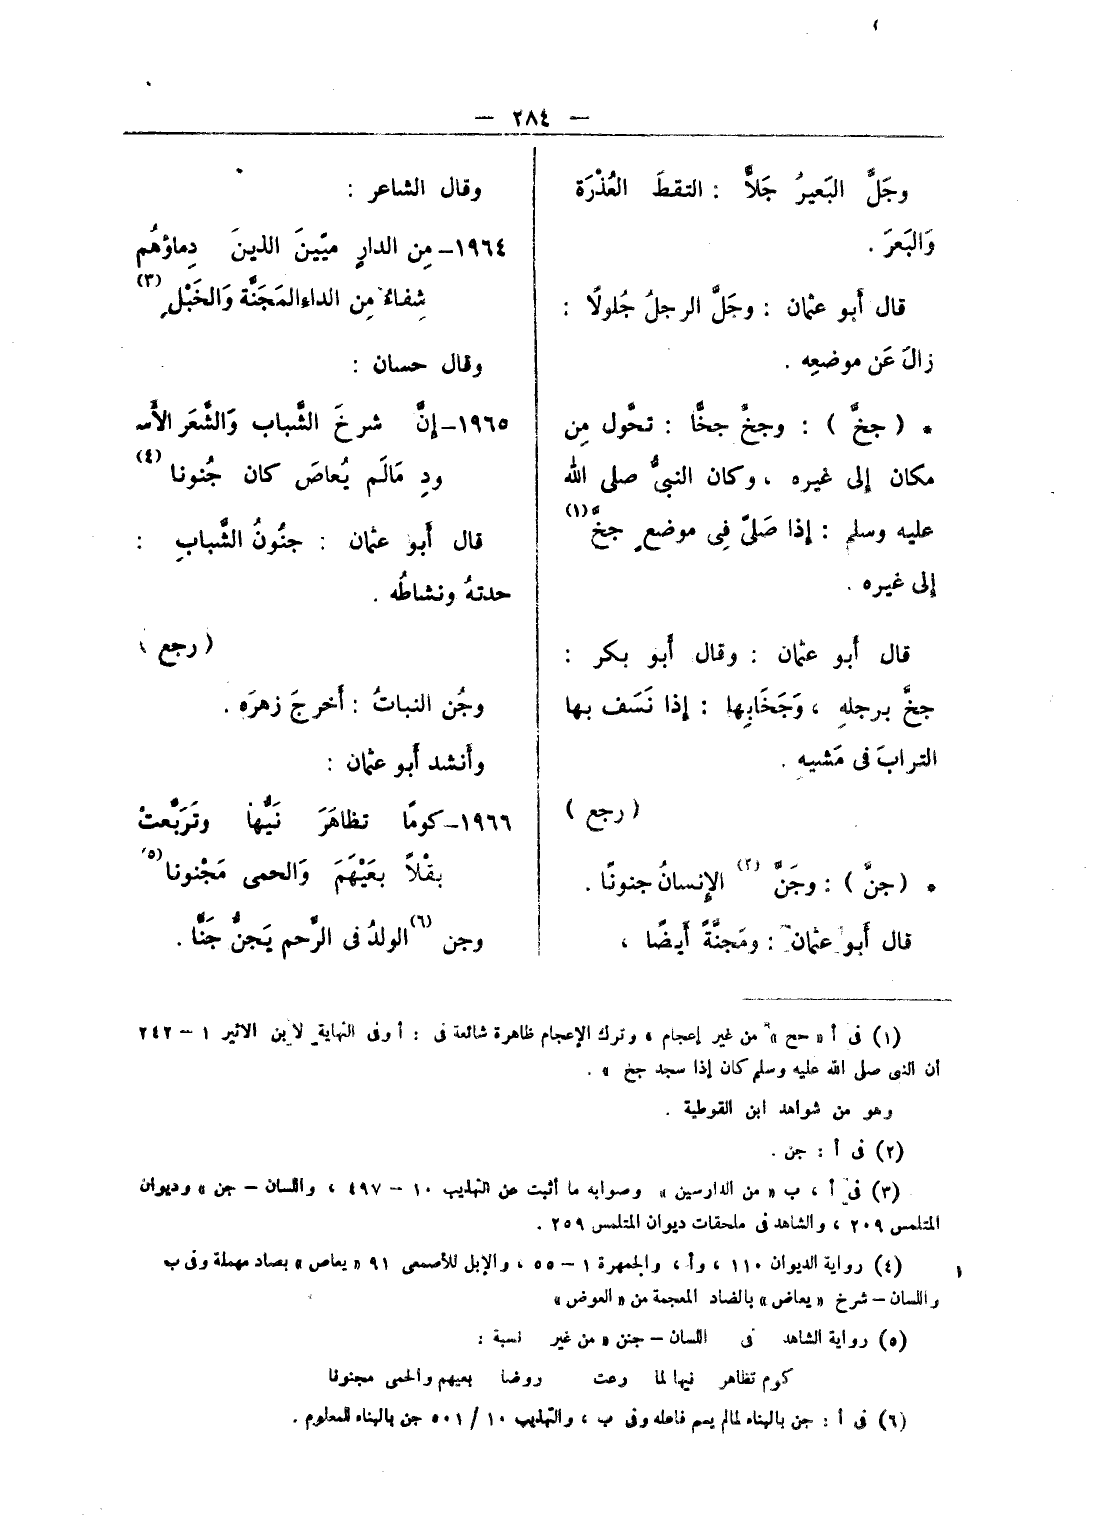 — ٢٨٤ —
وجَلَّ البَعيرُ جَلاًّ : التقطَ العُذْرَة
وَالبَعرَ .
قال أَبو عثمان : وجَلَّ الرجلُ جُلولًا :
زالَ عَن موضعِه .
* ( جخَّ ) : وجخَّ جخًّا : تحَّول مِن
مكان إِلى غيره ، وكان النبىُّ صلى الله
عليه وسلم : إِذا صَلىَّ فِى موضعٍ جخَّ (١)
إِلى غيره .
قال أَبو عثمان : وقال أَبو بكر :
جخَّ برجلهِ ، وَجَخَابِها : إِذا نَسَف بها
الترابَ فى مَشيهِ .
( رجع )
* (جنَّ ) : وجَنَّ (٢) الإِنسانُ جنونًا .
قال أَبو عثمان : ومَجنَّةً أَيضًا ،
وقال الشاعر :
١٩٦٤ـ مِن الدارِ ميّينَ الذينَ دِماؤهُم
شِفاءٌ مِن الداءالمَجَنَّة وَالخَبْلِ (٣)
وقال حسان :
١٩٦٥ـ إِنَّ شرخَ الشَّباب وَالشَّعَر الأَسـ
ودِ مَالَم يُعاصَ كان جُنونا (٤)
قال أَبو عثمان : جنُونُ الشَّبابِ :
حدتهُ ونشاطُه .
( رجع )
وجُن النباتُ : أَخرجَ زهرَه .
وأَنشد أَبو عثمان :
١٩٦٦ـ كومًا تظاهَرَ نَيُّها وتَرَبَّعتْ
بقْلاً بعَيْهَمَ وَالحمى مَجْنونا (٥)
وجن (٦) الولدُ فى الرَّحم يَجنُّ جَنًّا .
(١) فى أ « حح » من غير إعجام ، وترك الإعجام ظاهرة شائعة فى : أ وفى النهاية لابن الاثير ١ – ٢٤٢
أن النبى صلى الله عليه وسلم كان إذا سجد جخ » .
وهو من شواهد ابن القوطية .
(٢) فى أ : جن .
(٣) فى أ ، ب « من الدارسين » وصوابه ما أثبت عن التهذيب ١٠ – ٤٩٧ ، واللسان – جن » وديوان
المتلمس ٢٠٩ ، والشاهد فى ملحقات ديوان المتلمس ٢٥٩ .
(٤) رواية الديوان ١١٠ ، وأ ، والجمهرة ١ – ٥٥ ، والإبل للأصمعى ٩١ « يعاص » بصاد مهملة وفى ب
واللسان – شرخ « يعاض » بالضاد المعجمة من « العوض »
(٥) رواية الشاهد فى اللسان – جنن « من غير نسبة :
كوم تظاهر نيها لما رعت روضا بعيهم والحمى مجنونا
(٦) فى أ : جن بالبناء لمالم يسم فاعله وفى ب ، والتهذيب ١٠ / ٥٠١ جن بالبناء للمعلوم .